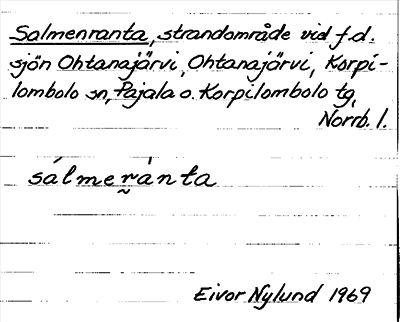 Salmenranta, strandområde vid f.d.
sjön Ohtanajärvi, Ohtanajärvi, Korpi-
lombolo sn, Pajala o. Korpilombolo tg,
Norrb. l.
sálmer̰ànta
Eivor Nylund 1969